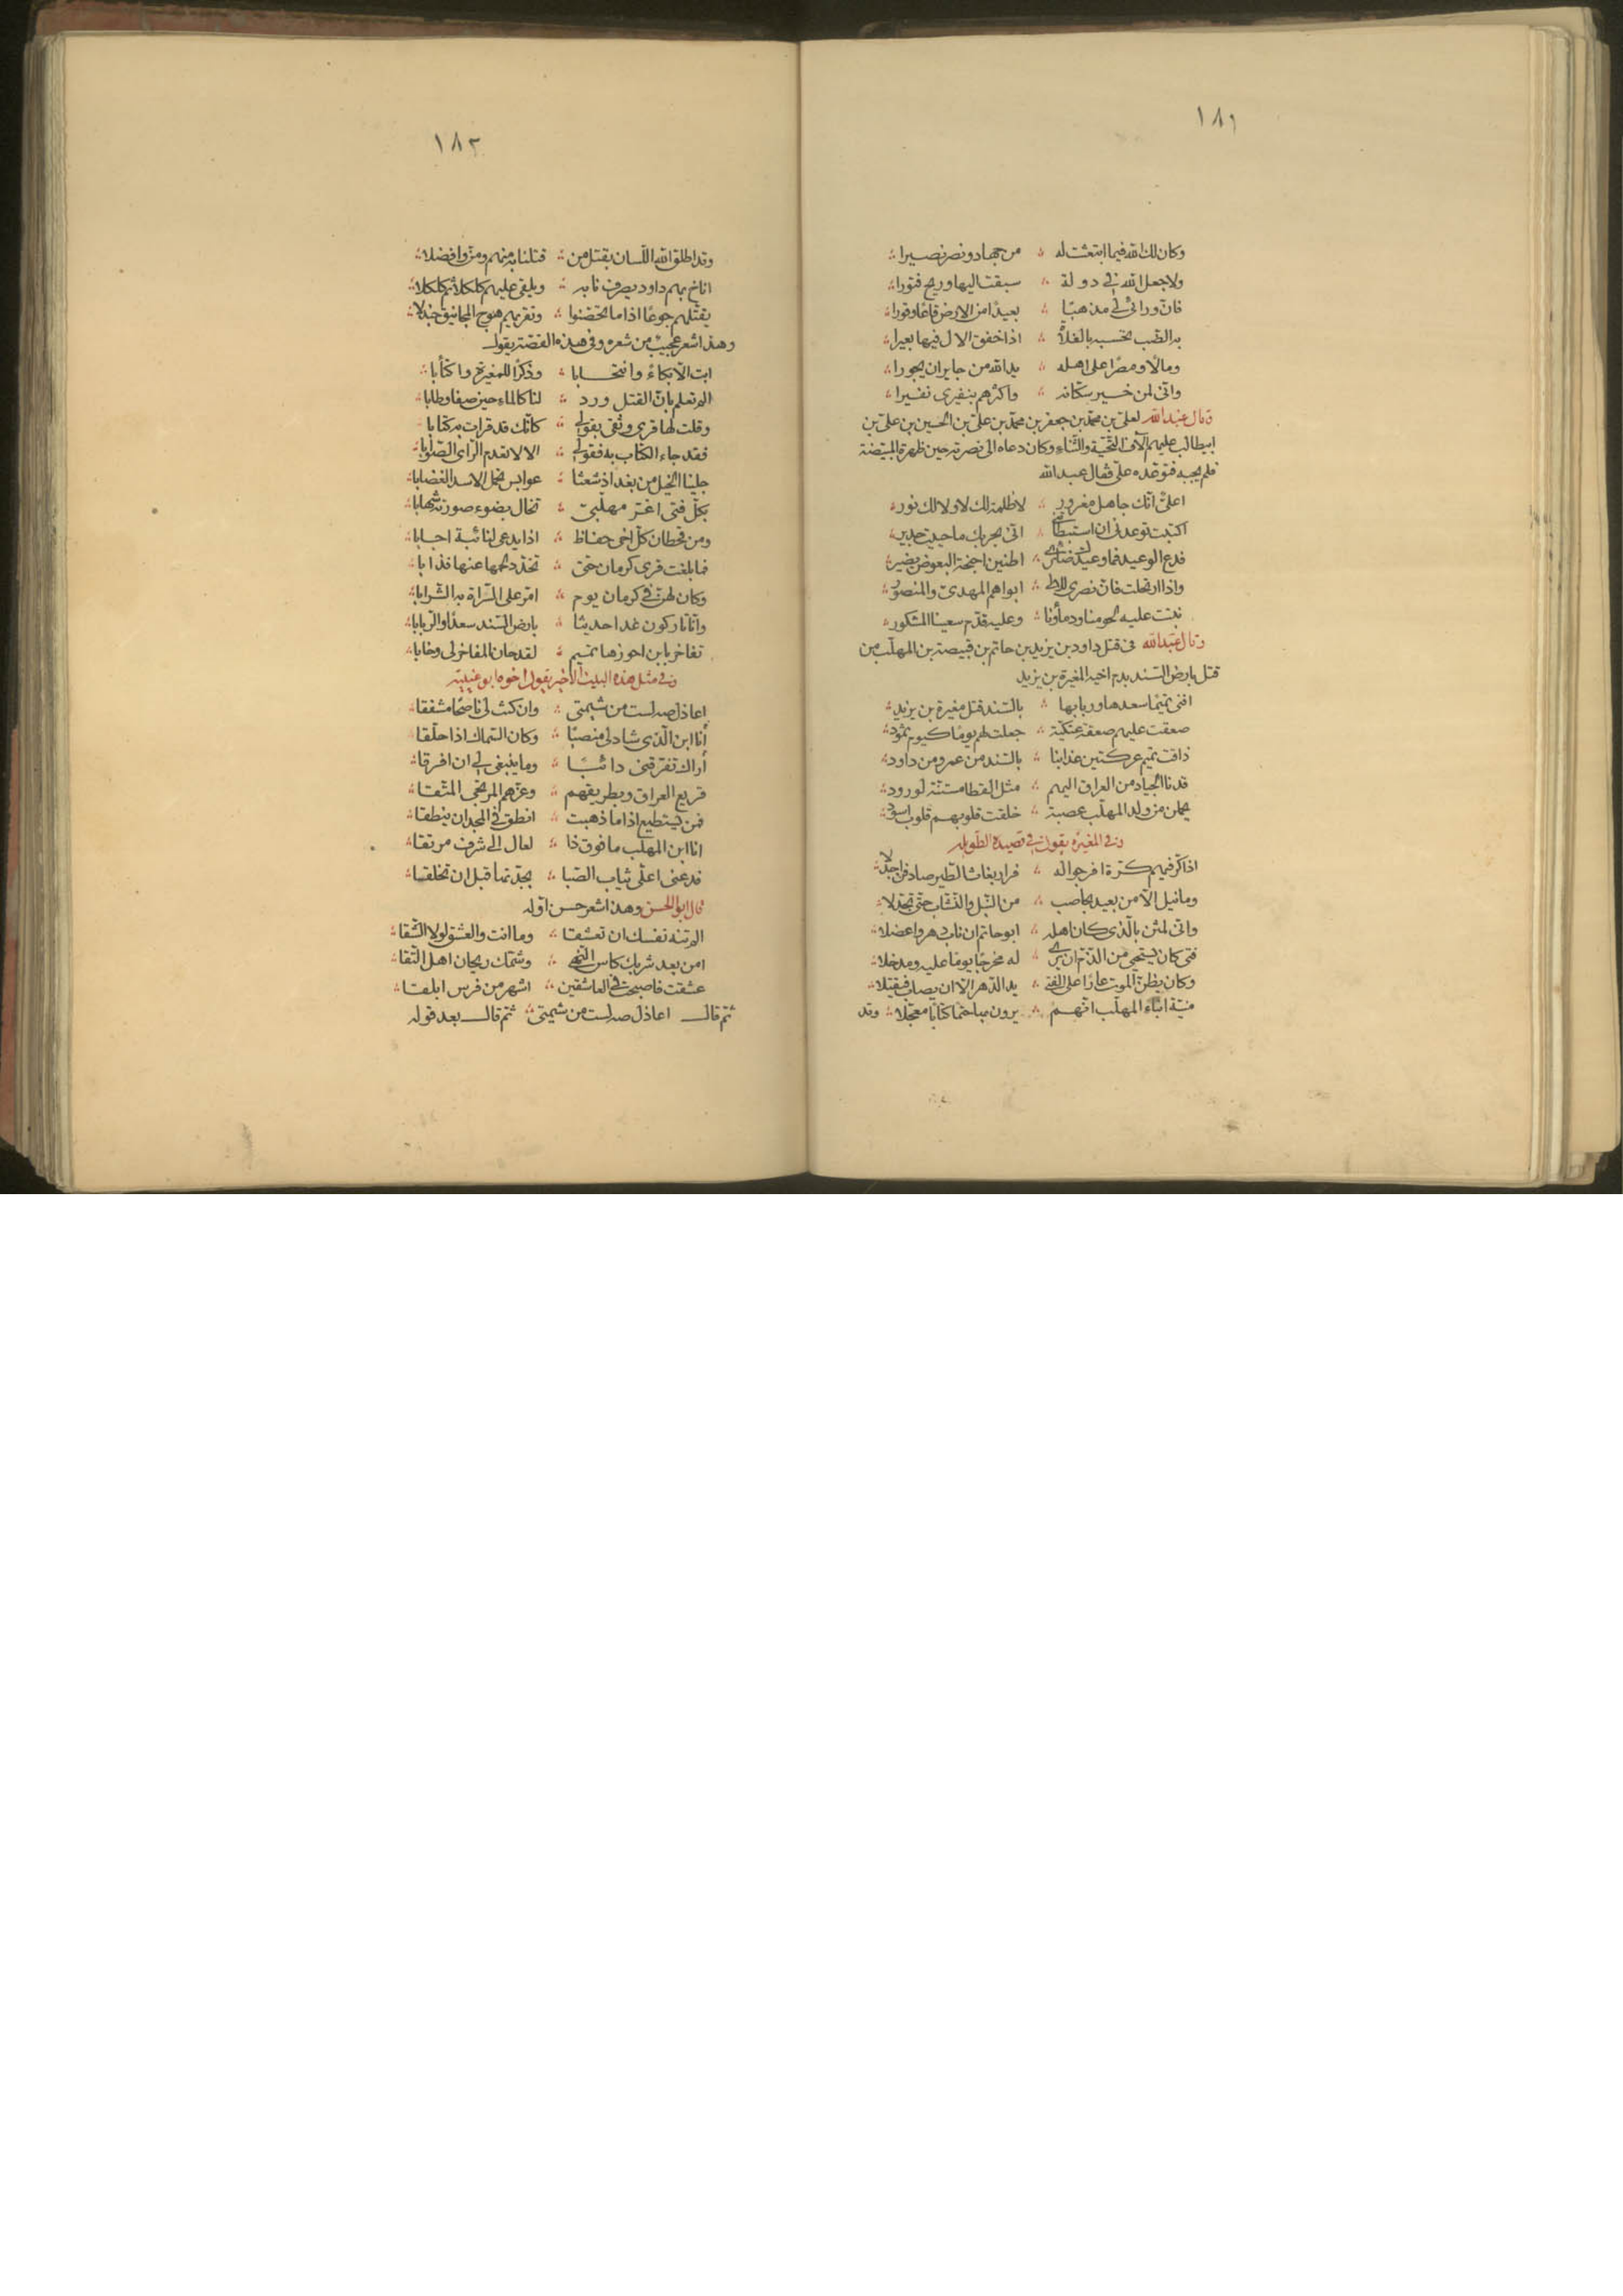 ١٨١
وكان لك الله فيما ابتعثت له ∴ من جهاد ونصر نصيرا
ولا جعل الله في دولة ∴ سبقت اليها وريح فتورا
فان ورائى لي مذهبًا ∴ بعيدًا من الارض قاعًا وقورا
به الضب تحسبه بالفلاة ∴ اذا خفق الال فيها بعيرا
ومالًا ومصرًا على اهله ∴ يد الله من جاير ان يجورا
وانى لمن خير سكانه ∴ واكثرهم بنفيرى نفيرا
وقال عبد الله لعلى بن محمد بن جعفر بن محمد بن على بن الحسين بن على بن
ابيطالب عليهم آلاف التحية والثناء وكان دعاه الى نصرته حين ظهرة المبيضة
فلم يجبه فتوعده على فقال عبد الله
اعلىّ انك جاهل مغرور ∴ لا ظلمة لك لا ولا لك نور
اكتبت توعدنى ان استبطأتنى ∴ انى بحربك ما حييت جدير
فدع الوعيد فما وعيدك ضائرى ∴ اطنين اجنحة البعوض يضير
واذا ارتحلت فان نصرى للالى ∴ ابواهم المهدى والمنصور
نبتت عليه لحومنا ودماؤنا ∴ وعليه قدّم سعينا المشكور
وقال عبد الله فى قتل داود بن يزيد بن حاتم بن قبيصة بن المهلّب من
قتل بارض السند بدم اخيه المغيرة بن يزيد
افنى تميمًا سعدها وربابها ∴ بالسند قتل مغيرة بن يزيد
صعقت عليهم صعقة عتكيّة ∴ جعلت لهم يومًا كيوم ثمود
ذاقت تميم عركتين عذابنا ∴ بالسند من عمرو ومن داود
قدنا الجياد من العراق اليهم ∴ مثل القطا مستنّة لورود
يحملن من ولد المهلّب عصبة ∴ خلقت قلوبهم قلوب اسود
وفى المغيرة يقول في قصيدة الطويلة
اذا كرّ فيهم كرّة افرجوا له ∴ فرار بغاث الطير صادفن اجدلا
وما نيل الّا من بعيد بحاصب ∴ من النبل والنشّاب حتى تجدلا
وانى لمثن بالّذى كان اهله ∴ ابو حاتم ان ناب دهر واعضلا
فتى كان يستحيى من الذّم ان يرى ∴ له مخرجًا يومًا عليه ومدخلا
وكان يظنّ الموت عارًا على الفتى ∴ يد الدّهر الّا ان يصاب فيقتلا
منيّة ابناء المهلّب انّهم ∴ يرون بها حتمًا كتابًا معجّلا وقد
١٨٢
وقد اطلق الله اللّسان بقتل من ∴ قتلنا به منهم ومنّ وافضلا
اناخ بهم داود يصرف نابه ∴ ويلقى عليهم كلكلًا ثم كلكلا
يقتّلهم جوعًا اذا ما تحصّنوا ∴ وتقريهم هوج المجانيق جندلا
وهذا شعر عجيب من شعره وفى هذه القصة يقول
ابت الّا بكاءً وانتحابا ∴ وذكرًا للمغيرة واكتئابا
الم تعلم بانّ القتل ورد ∴ لنا كالماء حين صفا وطابا
وقلت لها قرى وثقى بقولي ∴ كانّك قد قرات به كتابا
فقد جاء الكتاب به فقولي ∴ الا لا تعدم الرّاى الصّوابا
جلبنا الخيل من بغداد شعثا ∴ عوابس تحمل الاسد الغضابا
بكل فتى اغرّ مهلّبىّ ∴ تخال بضوء صورته شهابا
ومن قحطان كل اخى حفاظ ∴ اذا يدعى لنائبة اجابا
فما بلغت قرى كرمان حتى ∴ تخدّد لحمها عنها فذابا
وكان لهنّ في كرمان يوم ∴ امرّ على السّراة به الشّرابا
وانّا تاركون غدا حديثا ∴ بارض السّند سعدًا والرّبابا
تفاخر يا بن احوزها تميم ∴ لقد حان المفاخر لى وخابا
وفى مثل هذه البيت الاخير يقول اخوه ابو عيينة
اعاذل صه لست من شيمتى ∴ وان كنت لى ناصحًا مشفقا
أنا ابن الّذى شاد لى منصبًا ∴ وكان السّماك اذا حلّقا
أراك تفرّقنى دائبًا ∴ وما ينبغى لي ان افرقا
قريع العراق وبطريقهم ∴ وعزّهم المرتجى المتّقا
فمن يستطيع اذا ما ذهبت ∴ انطق في المجد ان ينطقا
انا ابن المهلّب ما فوق ذا ∴ لعال الى شرف مرتقا
فدعنى اغلى ثياب الصّبا ∴ بجدّتها قبل ان تخلقا
قال ابو الحسن وهذا شعر حسن اوّله
الم تنه نفسك ان تعشقا ∴ وما انت والعشق لولا الشّقا
امن بعد شربك كاس النّهى ∴ وشمّك ريحان اهل التّقا
عشقت فاصبحت في العاشقين ∴ اشهر من فرس ابلقا
ثم قال اعاذل صه لست من شيمتى ∴ ثم قال بعد قوله